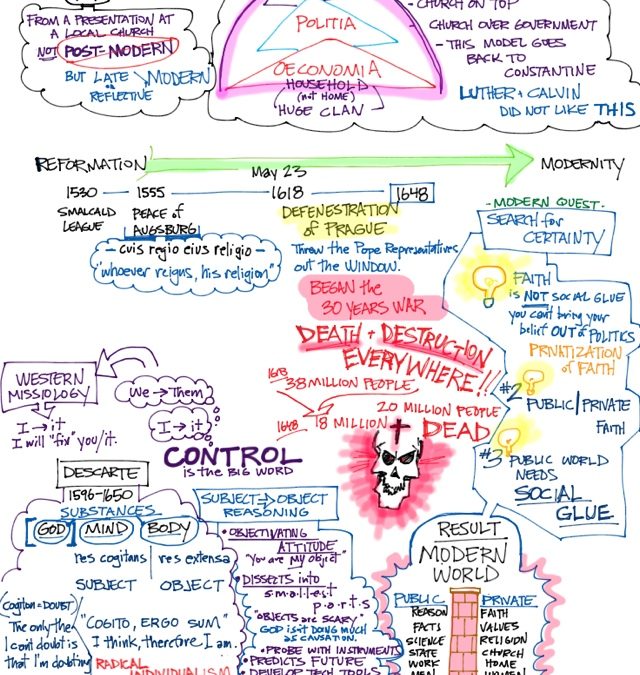 FROM A PRESENTATION AT
A LOCAL CHURCH
NOT POST-MODERN
BUT LATE MODERN
OR
REFLECTIVE
POLITIA
OECONOMIA
HOUSEHOLD
(not HOME)
HUGE CLAN
- CHURCH ON TOP
CHURCH OVER GOVERNMENT
- THIS MODEL GOES
BACK TO
CONSTANTINE
LUTHER + CALVIN
DID NOT LIKE THIS
REFORMATION
MODERNITY
May 23
1530 — 1555
1618
1648
SMALCALD
LEAGUE
PEACE of
AUGSBURG
- cuis regio eius religio -
"whoever reigns, his religion"
DEFENESTRATION
of PRAGUE
Threw the Pope Representatives
out the WINDOW.
BEGAN the
30 YEARS WAR
DEATH + DESTRUCTION
EVERYWHERE!!
1618
38 MILLION PEOPLE
1648
18 MILLION
20 MILLION PEOPLE
DEAD
- MODERN QUEST -
SEARCH for
CERTAINTY
FAITH
is NOT SOCIAL GLUE
you cant bring your
belief OUT of POLITICS
PRIVATIZATION
of FAITH
#2
PUBLIC/PRIVATE
FAITH
#3 PUBLIC WORLD
NEEDS
SOCIAL
GLUE
WESTERN
MISSIOLOGY
We → Them
I → it
I → it
I will "fix" you/it.
CONTROL
is the BIG WORD
DESCARTE
1596-1650
SUBSTANCES
GOD MIND BODY
res cogitans
res extensa
SUBJECT
OBJECT
Cogiton = DOUBT
The only the
I cant doubt is
that I'm doubting
"COGITO, ERGO SUM"
I think, therefore I am.
RADICAL
INDIVIDUALISM
SUBJECT → OBJECT
REASONING
• OBJECTIVATING
ATTITUDE
"You are MY OBJECT"
• DISSECTS into
smallest
parts
"OBJECTS are SCARY"
GOD isn't DOING MUCH
as CAUSATION.
• PROBE with INSTRUMENTS
• PREDICTS FUTURE
• DEVELOP TECH TOOLS
RESULT
MODERN
WORLD
PUBLIC
PRIVATE
REASON
FAITH
FACTS
VALUES
SCIENCE
RELIGION
STATE
CHURCH
WORK
HOME
MEN
WOMEN